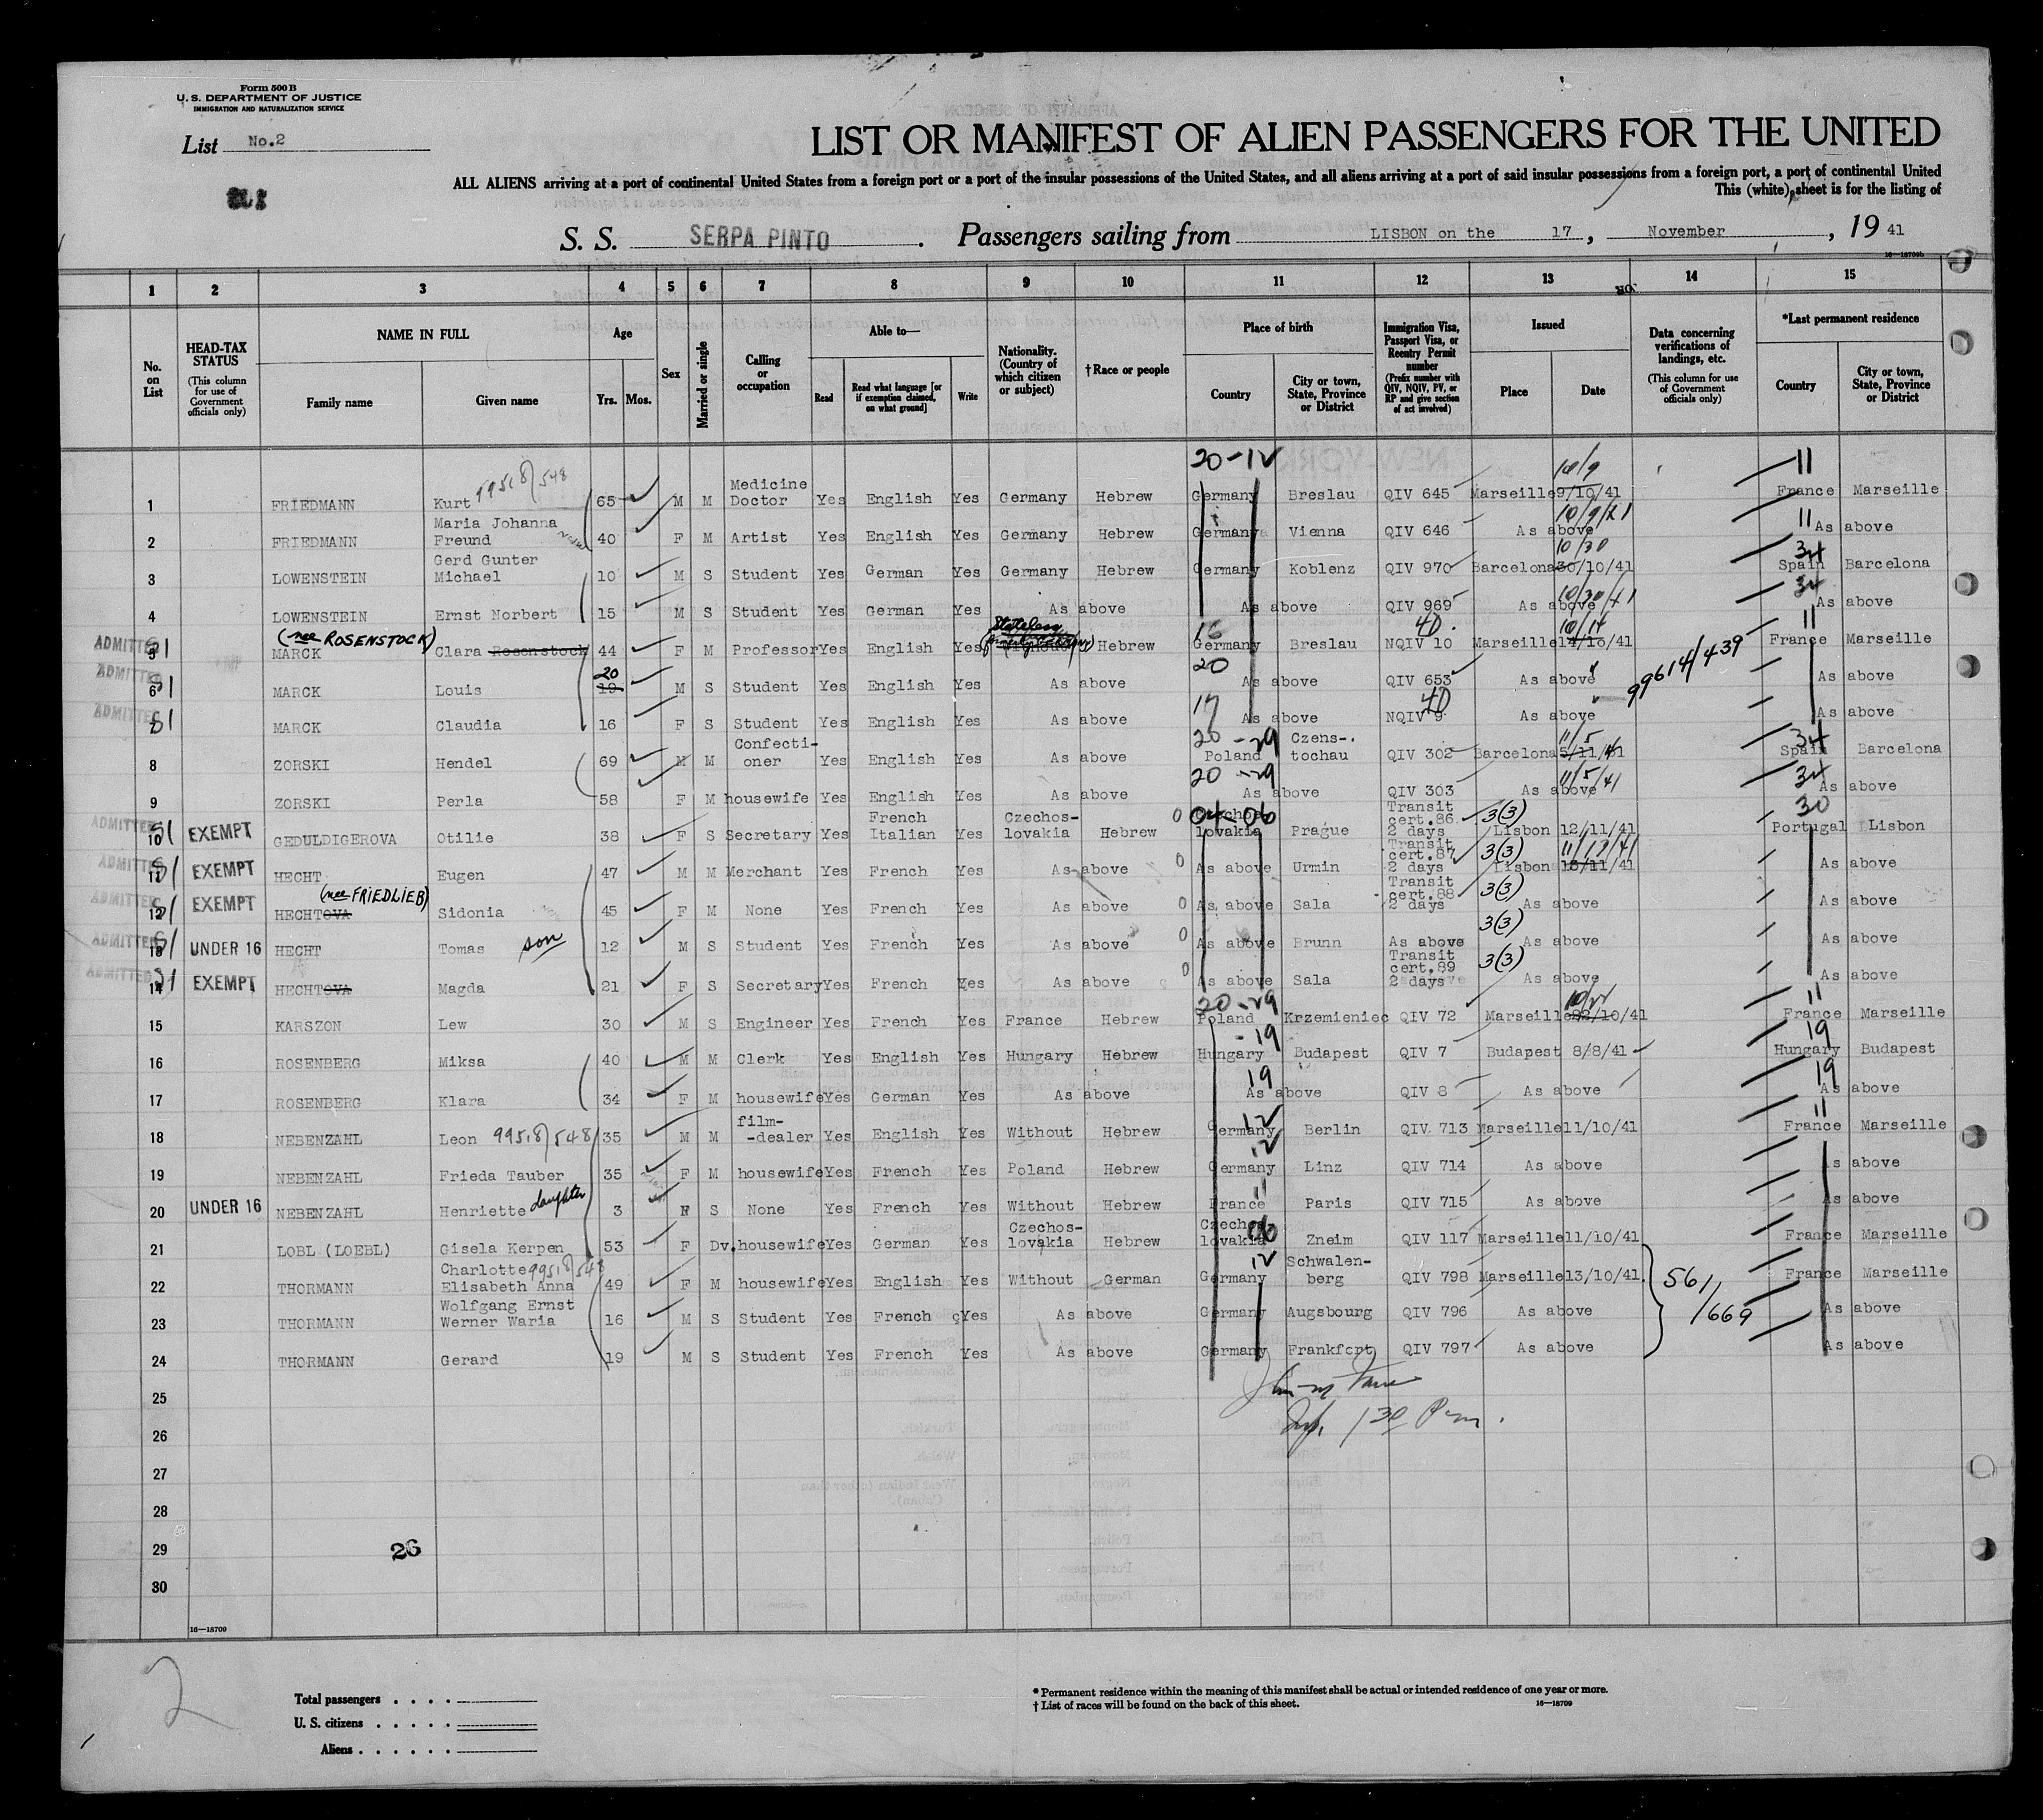 Form 500 B
U. S. DEPARTMENT OF JUSTICE
IMMIGRATION AND NATURALIZATION SERVICE
List No.2
LIST OR MANIFEST OF ALIEN PASSENGERS FOR THE UNITED
ALL ALIENS arriving at a port of continental United States from a foreign port or a port of the insular possessions of the United States, and all aliens arriving at a port of said insular possessions from a foreign port, a port of continental United
This (white) sheet is for the listing of
S. S. SERPA PINTO. Passengers sailing from LISBON on the 17, November, 19 41
16—18709b
1 2 3 4 5 6 7 8 9 10 11 12 13 14 15
No. on List
HEAD-TAX STATUS (This column for use of Government officials only)
NAME IN FULL Family name Given name
Age Yrs. Mos.
Sex
Married or single
Calling or occupation
Able to— Read Read what language [or if exemption claimed, on what ground] Write
Nationality. (Country of which citizen or subject)
†Race or people
Place of birth Country City or town, State, Province or District
Immigration Visa, Passport Visa, or Reentry Permit number (Prefix number with QIV, NQIV, PV, or RP and give section of act involved)
Issued Place Date
Data concerning verifications of landings, etc. (This column for use of Government officials only)
*Last permanent residence Country City or town, State, Province or District
20-12 10/9 11
1 FRIEDMANN Kurt 99518/548 65 M M Medicine Doctor Yes English Yes Germany Hebrew Germany Breslau QIV 645 Marseille 9/10/41 France Marseille
10/9/41 11
2 FRIEDMANN Maria Johanna Freund 40 F M Artist Yes English Yes Germany Hebrew Germany Vienna QIV 646 As above As above
10/30 34
3 LOWENSTEIN Gerd Gunter Michael 10 M S Student Yes German Yes Germany Hebrew Germany Koblenz QIV 970 Barcelona 30/10/41 Spain Barcelona
10/30/41 34
4 LOWENSTEIN Ernst Norbert 15 M S Student Yes German Yes As above As above QIV 969 As above As above
(nee ROSENSTOCK) Stateless 16 4D. 10/14 11
ADMITTED 5 MARCK Clara Rosenstock 44 F M Professor Yes English Yes Hebrew Germany Breslau NQIV 10 Marseille 14/10/41 France Marseille
20 20 99614/439
ADMITTED 6 MARCK Louis 19 M S Student Yes English Yes As above As above QIV 653 As above As above
17 4D
ADMITTED 7 MARCK Claudia 16 F S Student Yes English Yes As above As above NQIV 9 As above As above
20-29 11/5 34
8 ZORSKI Hendel 69 M M Confectioner Yes English Yes As above Poland Czens-tochau QIV 302 Barcelona 5/11/41 Spain Barcelona
20-29 11/5/41 34
9 ZORSKI Perla 58 F M housewife Yes English Yes As above As above QIV 303 As above As above
04-06 3(3) 30
ADMITTED 10 EXEMPT GEDULDIGEROVA Otilie 38 F S Secretary Yes French Italian Yes Czechos-lovakia Hebrew Czechoslovakia Prague Transit cert.86 2 days Lisbon 12/11/41 Portugal Lisbon
3(3)
ADMITTED 11 EXEMPT HECHT Eugen 47 M M Merchant Yes French Yes As above As above Urmin Transit cert.87 2 days Lisbon As above
(nee FRIEDLIEB) 3(3)
ADMITTED 12 EXEMPT HECHTOVA Sidonia 45 F M None Yes French Yes As above As above Sala Transit cert.88 2 days As above As above
3(3)
ADMITTED 13 UNDER 16 HECHT Tomas son 12 M S Student Yes French Yes As above As above Brunn As above As above As above
3(3)
ADMITTED 14 EXEMPT HECHTOVA Magda 21 F S Secretary Yes French Yes As above As above Sala Transit cert.89 2 days As above As above
20-29 10/22 11
15 KARSZON Lew 30 M S Engineer Yes French Yes France Hebrew Poland Krzemieniec QIV 72 Marseille 22/10/41 France Marseille
-19 19
16 ROSENBERG Miksa 40 M M Clerk Yes English Yes Hungary Hebrew Hungary Budapest QIV 7 Budapest 8/8/41 Hungary Budapest
19 19
17 ROSENBERG Klara 34 F M housewife Yes German Yes As above As above QIV 8 As above As above
12 11
18 NEBENZAHL Leon 99518/548 35 M M film-dealer Yes English Yes Without Hebrew Germany Berlin QIV 713 Marseille 11/10/41 France Marseille
12
19 NEBENZAHL Frieda Tauber 35 F M housewife Yes French Yes Poland Hebrew Germany Linz QIV 714 As above As above
11
20 UNDER 16 NEBENZAHL Henriette daughter 3 F S None Yes French Yes Without Hebrew France Paris QIV 715 As above As above
06
21 LOBL (LOEBL) Gisela Kerpen 53 F Dv. housewife Yes German Yes Czechos-lovakia Hebrew Czechoslovakia Zneim QIV 117 Marseille 11/10/41 France Marseille
12
22 THORMANN Charlotte Elisabeth Anna 99518/548 49 F M housewife Yes English Yes Without German Germany Schwalen-berg QIV 798 Marseille 13/10/41 561/669 France Marseille
23 THORMANN Wolfgang Ernst Werner Waria 16 M S Student Yes French Yes As above Germany Augsbourg QIV 796 As above As above
24 THORMANN Gerard 19 M S Student Yes French Yes As above Germany Frankfort QIV 797 As above As above
25
26
27
28
29 26
30
16—18709
2
Total passengers
U. S. citizens
Aliens
* Permanent residence within the meaning of this manifest shall be actual or intended residence of one year or more.
† List of races will be found on the back of this sheet. 16—18709